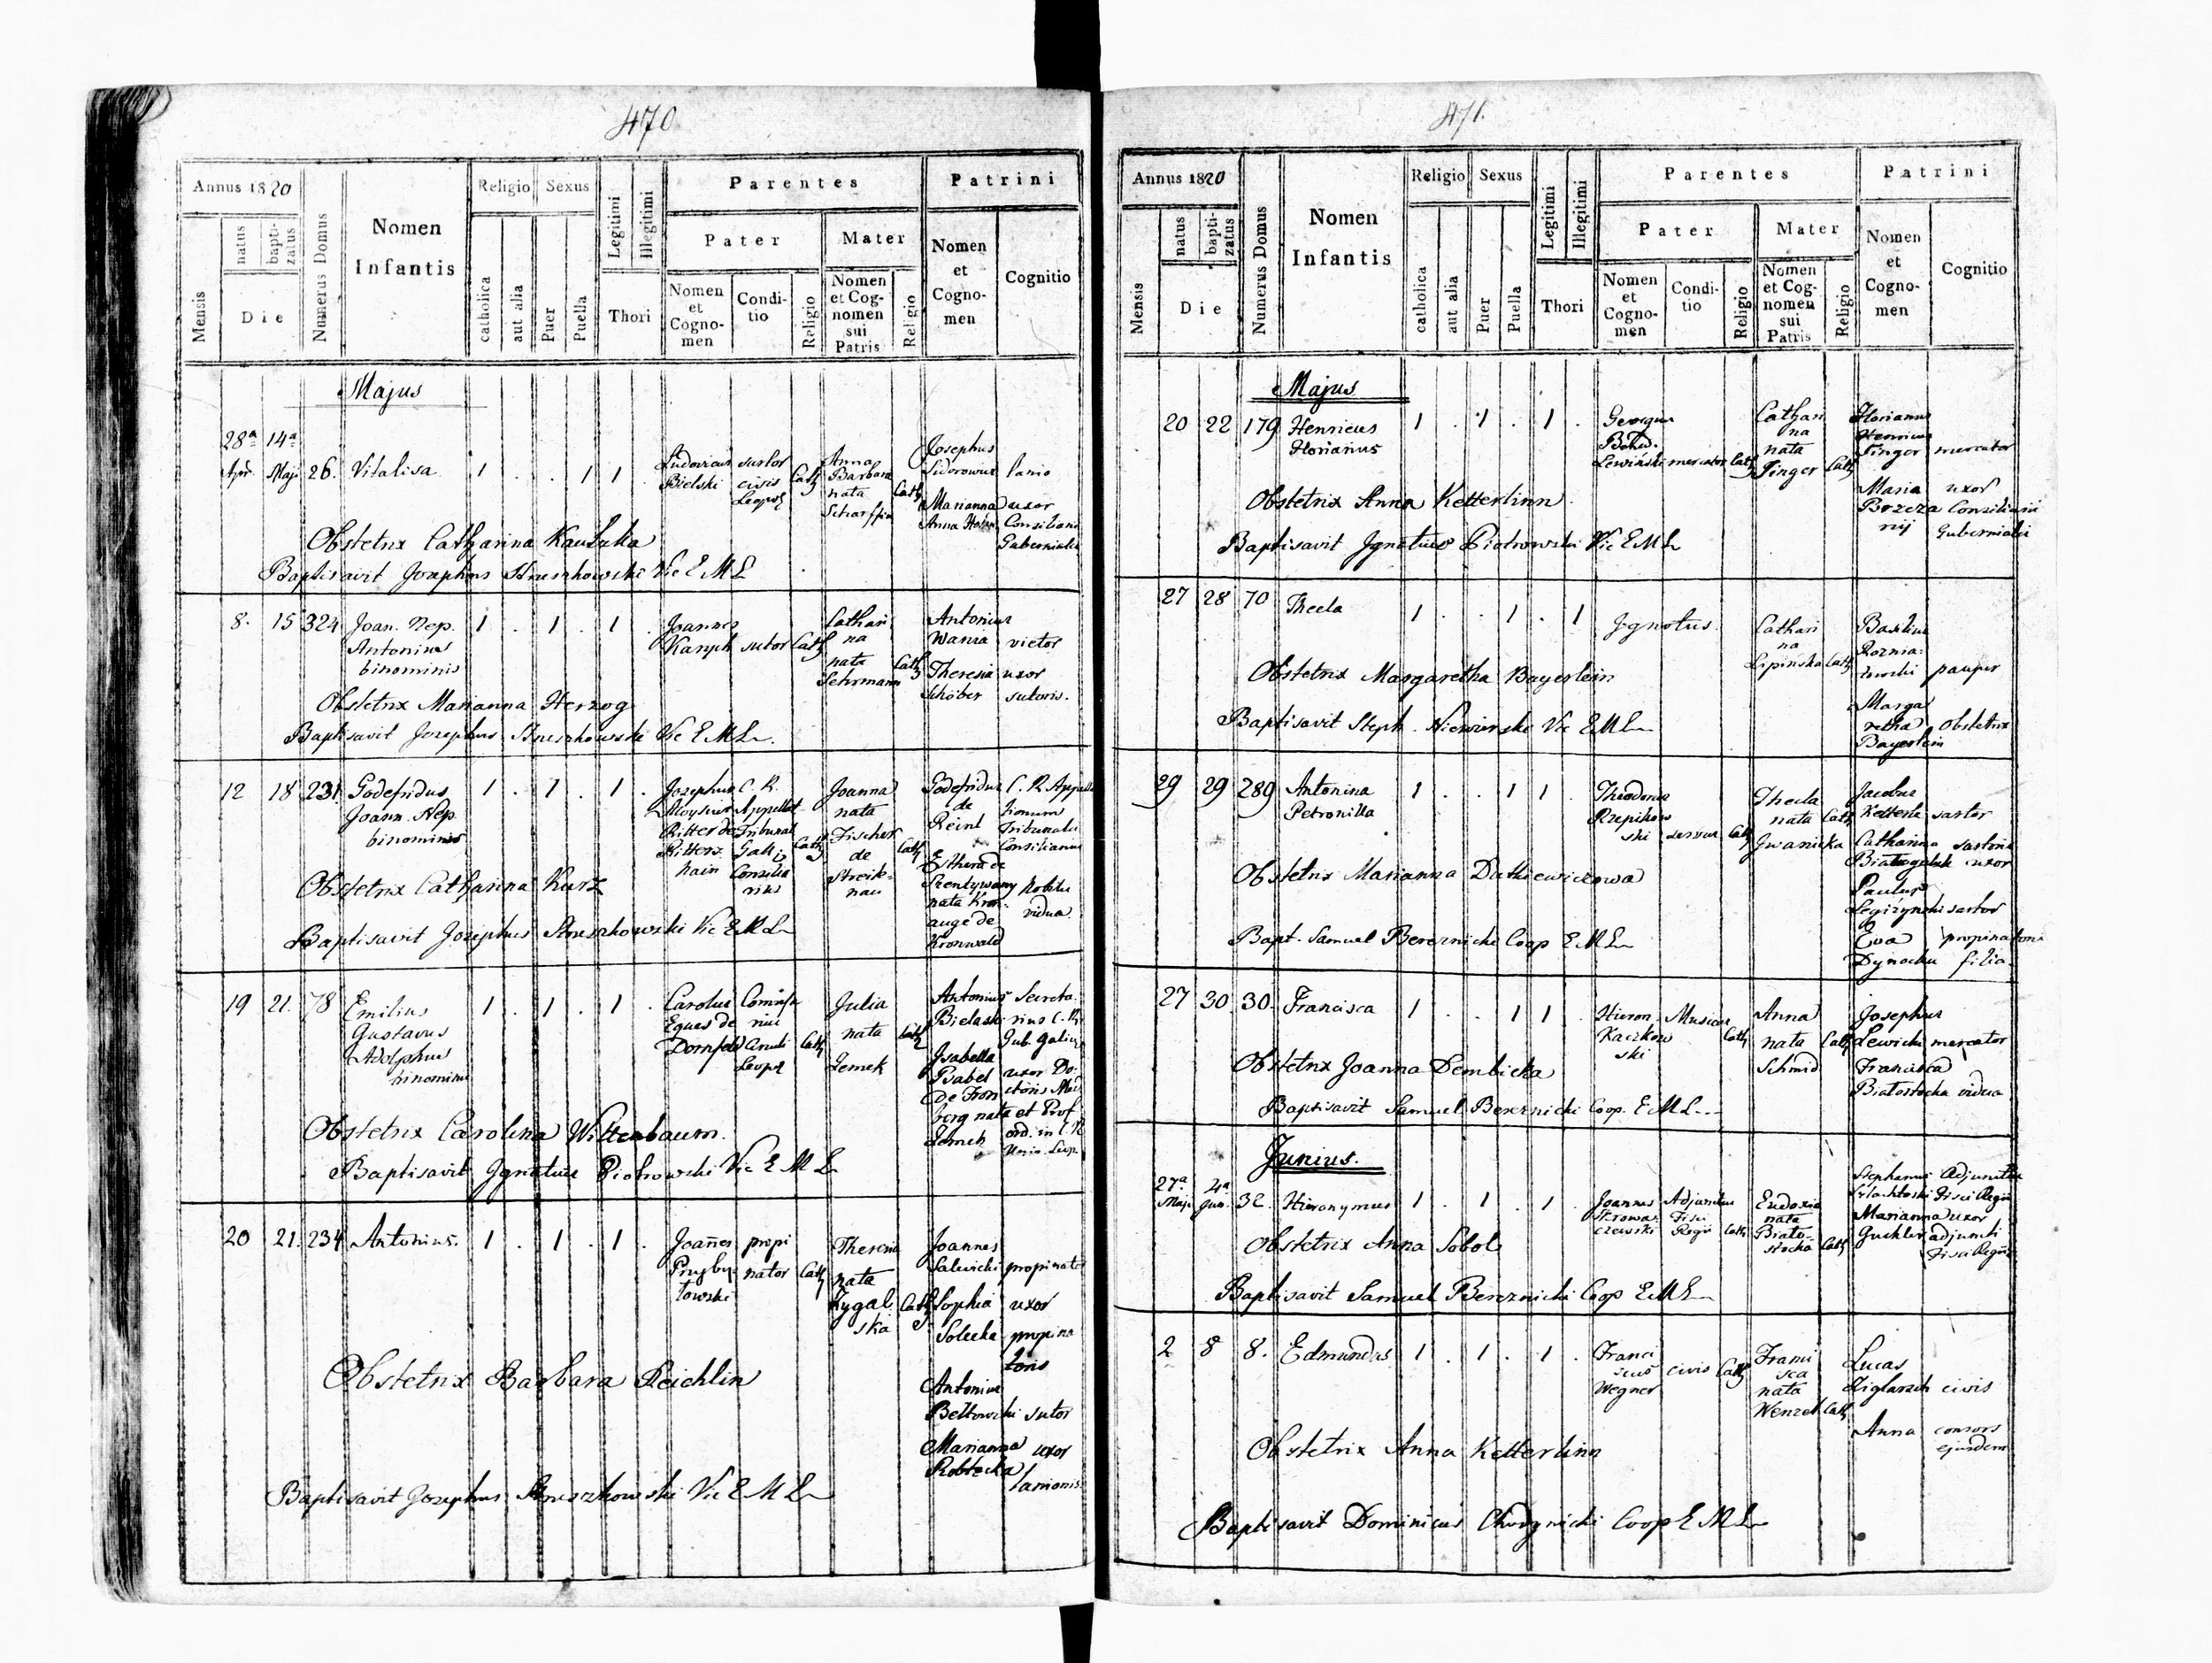 470
Annus 1820
Religio Sexus
Parentes
Patrini
Mensis
natus
bapti-
zatus
Die
Numerus Domus
Nomen
Infantis
catholica
aut alia
Puer
Puella
Legitimi
Illegitimi
Thori
Pater
Mater
Nomen
et
Cogno-
men
Condi-
tio
Religio
Nomen
et Cog-
nomen
sui
Patris
Religio
Nomen
et
Cogno-
men
Cognitio
Majus
28a 14a
Apr. Maji 26. Vitalisa 1 . . 1 1 .
Ludovicus
Bielski
sutor
civis
Leopol
Cath
Anna
Barbara
nata
Cath
Josephus
Sidorowicz lanio
Marianna uxor
Anna Consiliarii
Gubernialis
Obstetrix Catharina
Baptisavit Josephus Vic E M L
8. 15 324 Joan. Nep. 1 . 1 . 1 .
Antonius
binominis
Joannes
sutor Cath
Cathari
na
nata
Cath
Antonius
Wania victor
Theresia uxor
Schöber sutoris.
Obstetrix Marianna Herzog
Baptisavit Josephus Vic E M L
12 18 231 Godefridus 1 . 1 . 1 .
Joann. Nep.
binominis
Josephus C. R.
Aloysius Appellat
Ritter de Tribunal
Ritters Gali
hain Consilia
rius
Cath
Joanna
nata
Fischer
de
Streit-
nau
Cath
Godefridus C. R. Appella
de tionum
Reinl Tribunalis
Consiliarius
Esthera de
Szentywany Nobilis
nata Kron- vidua
auge de
Kronwald
Obstetrix Catharina Kurz
Baptisavit Josephus Vic E M L
19 21. 78 Emilius 1 . 1 . 1 .
Gustavus
Adolphus
binominis
Carolus
Eques de
Dornfeld
Leopol
Cath
Julia
nata
Zemek
Cath
Antonius Secreta
Bielaski rius C. R.
Gub. Galic
Isabella
Babel uxor Do-
De Fron ctoris Med
berg nata et Prof
Zemek ord. in C R
Obstetrix Carolina Wittenbaum.
Baptisavit Ignatius Piotrowski Vic E M L
20 21. 234 Antonius. 1 . 1 . 1 .
Joannes propi
Przyby- nator Cath
lowski
Theresia
nata
Zygal
ska
Cath
Joannes
Salwicki propinator
Sophia uxor
Solecka propina
toris
Antonius
Beltowski sutor
Marianna uxor
lanionis
Obstetrix Barbara Reichlin
Baptisavit Josephus Vic E M L
471.
Annus 1820
Religio Sexus
Parentes
Patrini
Mensis
natus
bapti-
zatus
Die
Numerus Domus
Nomen
Infantis
catholica
aut alia
Puer
Puella
Legitimi
Illegitimi
Thori
Pater
Mater
Nomen
et
Cogno-
men
Condi-
tio
Religio
Nomen
et Cog-
nomen
sui
Patris
Religio
Nomen
et
Cogno-
men
Cognitio
Majus
20 22 179 Henricus 1 . 1 . 1 .
Florianus
Georgius
Lewiński mercator Cath
Cathari
na
nata
Finger Cath
Florianus
Henricus
Finger mercator
Maria uxor
Brzeza Consiliarii
nij Gubernialis
Obstetrix Anna Ketterlinn
Baptisavit Ignatius Piotrowski Vic E M L
27 28 70 Thecla 1 . . 1 . 1
Ignotus.
Cathari
na
Lipińska Cath
Basilius
Roznia-
towski pauper
Marga
retha Obstetrix
Bayerlein
Obstetrix Margaretha Bayerlein
Baptisavit Steph. Vic E M L
29 29 289 Antonina 1 . . 1 1 .
Petronilla
Theodorus
Rzepikow
ski Cath
Thecla
nata Cath
Iwanicka
Jacobus
Ketterle sartor
Catharina sartoris
uxor
Paulus
sartor
Eva propinatoris
filia
Obstetrix Marianna Dutkiewiczowa
Bapt. Samuel Bereznicki Coop E M L
27 30. 30. Francisca 1 . . 1 1 .
Hieron. Musicus
Kaczkow Cath
ski
Anna
nata Cath
Schmid
Josephus
Lewicki mercator
Francisca
Białostocka vidua
Obstetrix Joanna Dembicka
Baptisavit Samuel Bereznicki Coop. E M L
Junius.
27a 4a
Maji Jun. 32. Hieronymus 1 . 1 . 1 .
Joannes Adjunctus
Fisci
czewski Regii Cath
Eudoxia
nata
Biało-
stocka Cath
Stephanus Adjunctus
Szlachtoski Fisci Regii
Marianna uxor
adjuncti
Fisci Regii
Obstetrix Anna Sobol
Baptisavit Samuel Bereznicki Coop E M L
2 8 8. Edmundus 1 . 1 . 1 .
Franci
scus civis Cath
Wegner
Franci
sca
nata
Wenzel Cath
Lucas
civis
Anna consors
ejusdem
Obstetrix Anna Ketterlinn
Baptisavit Dominicus Chodynicki Coop E M L